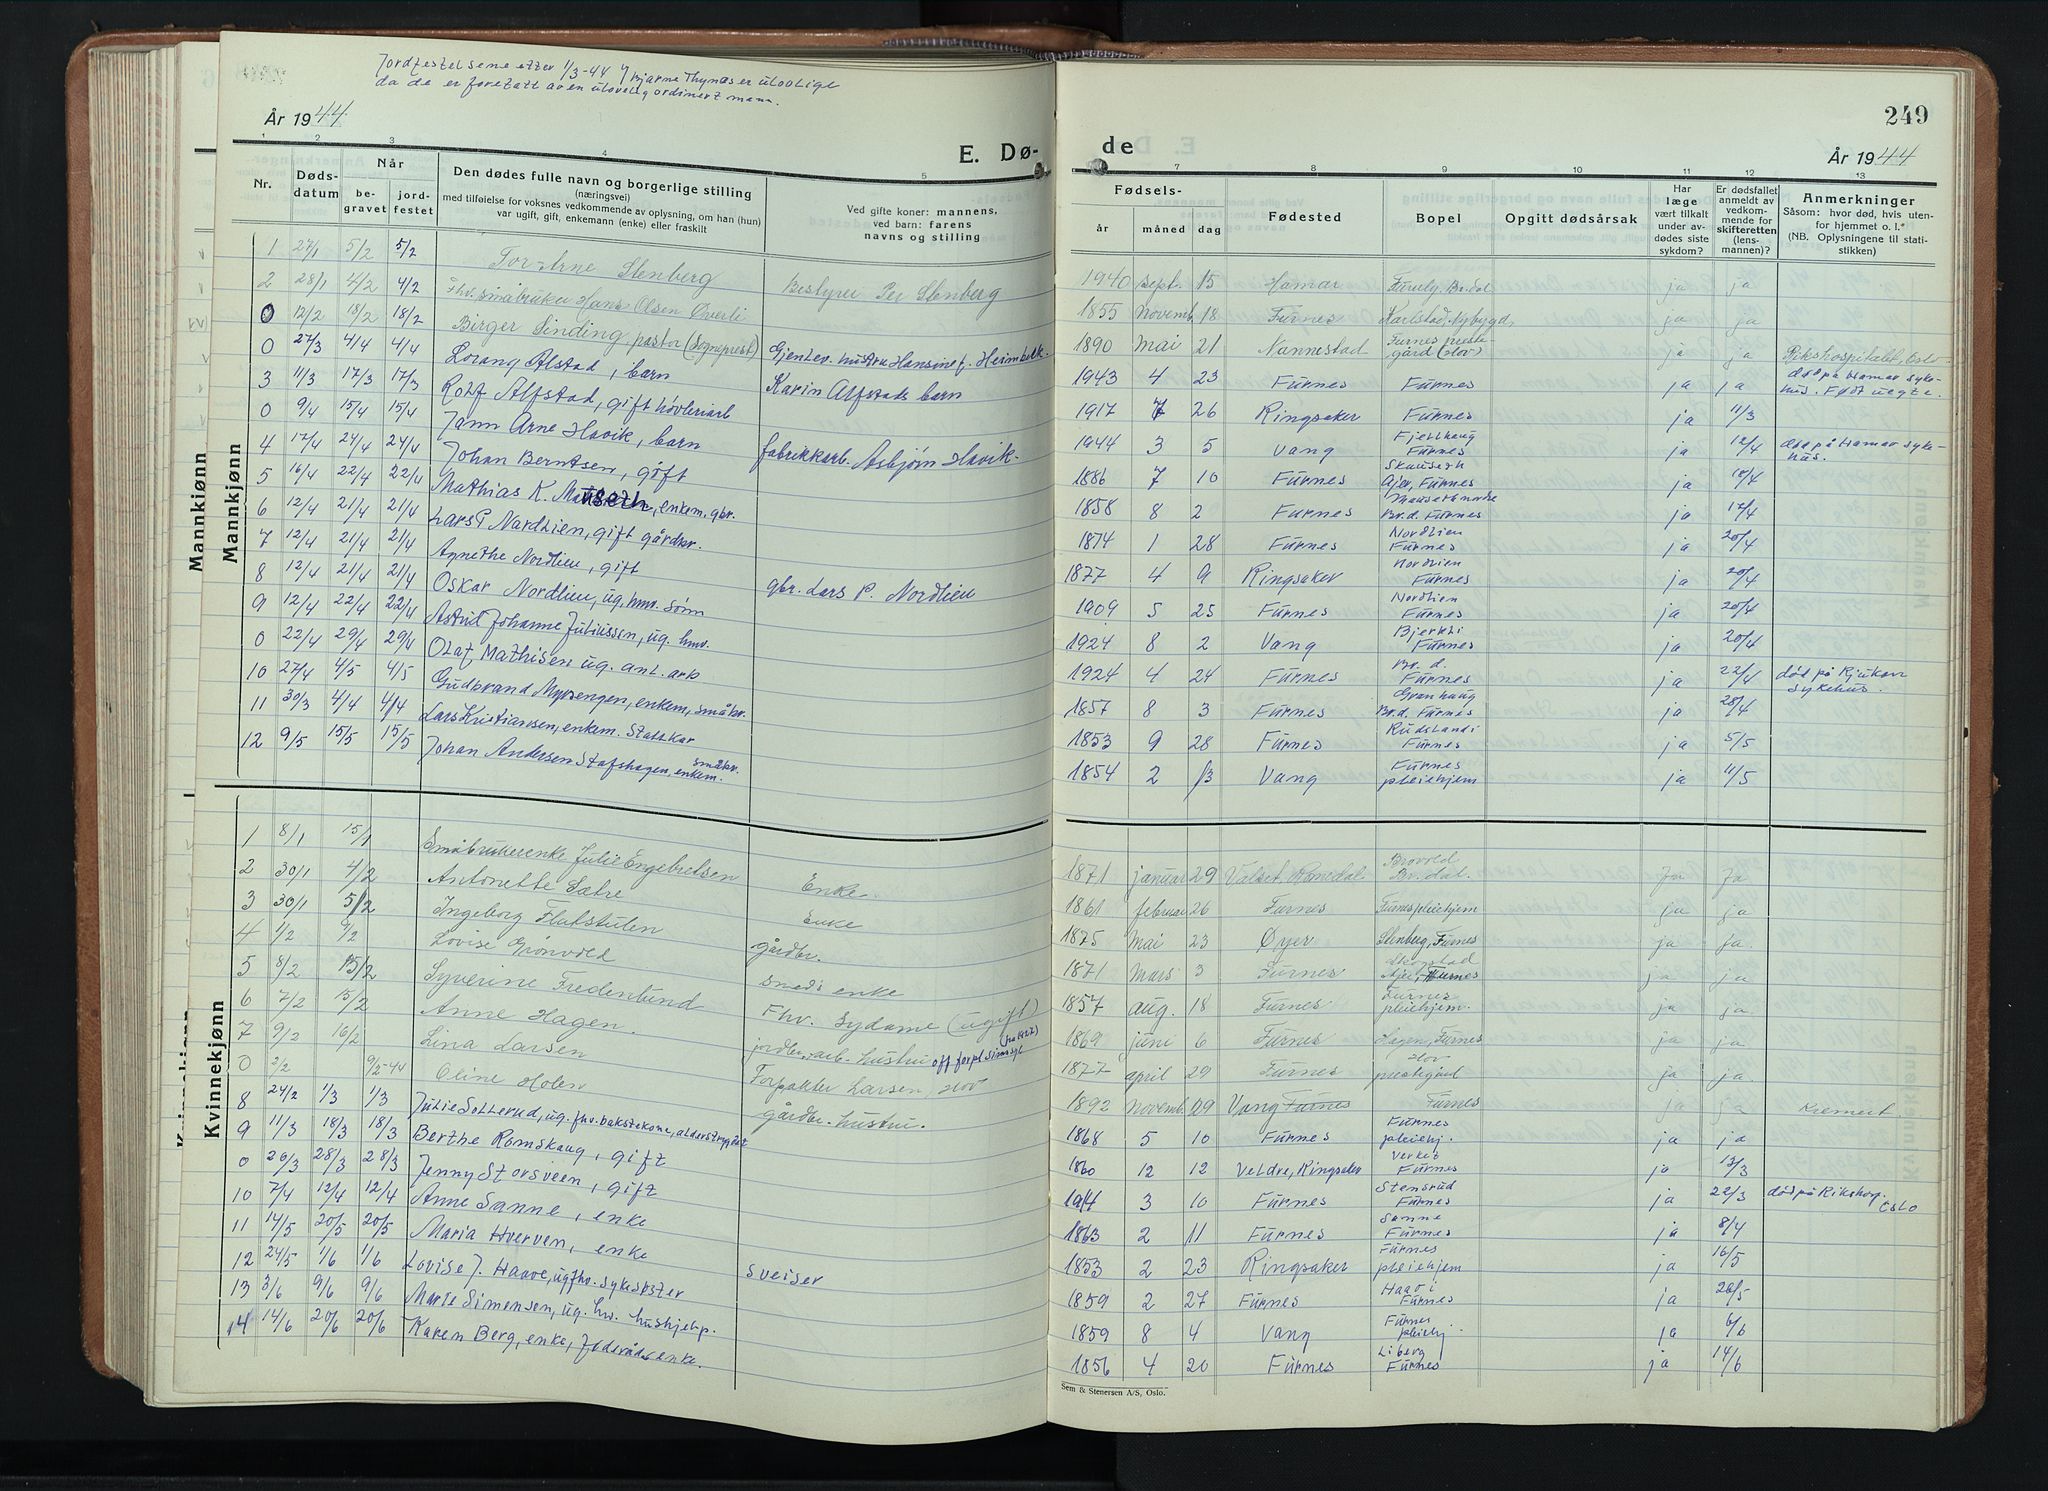 Jordfestelsene etter 11/3-44 v/ Bjarne Thynæs er ulovlige
da de er foretatt av en ulovlig ordinert mann.
249
År 1944
E. Dø-
de
År 1944
1 2 3 4 5 7 8 9 10 11 12 13
Nr. Døds-datum Når be-gravet jord-festet Den dødes fulle navn og borgerlige stilling (næringsvei) med tilføielse for voksnes vedkommende av oplysning, om han (hun) var ugift, gift, enkemann (enke) eller fraskilt Ved gifte koner: mannens, ved barn: farens navns og stilling Fødsels- år måned dag Fødested Bopel Opgitt dødsårsak Har læge vært tilkalt under av-dødes siste sykdom? Er dødsfallet anmeldt av vedkom-mende for skifteretten (lens-mannen)? Anmerkninger Såsom: hvor død, hvis uten-for hjemmet o. l.* (NB. Oplysningene til stati-stikken)
Mannkjønn
1 27/1 5/2 5/2 Tor-Arne Stenberg Bestyrer Per Stenberg 1940 sept. 15 Hamar Furuly, Br.dal ja ja
2 28/1 4/2 4/2 Fhv. småbruker Hans Olsen Øverli 1855 Novemb. 18 Furnes Karlstad, Nybygd ja ja
0 12/2 18/2 18/2 Birger Sinding, pastor (Sogneprest) Gjenlev. hustru Hansine f. Heimbek. 1890 Mai 21 Nannestad Furnes prestegård (Hov) ja ja Rikshospitalet, Oslo
0 27/3 4/4 4/4 Lorang Alstad, barn Karin Alfstads barn 1943 4 23 Furnes Furnes ja ja død på Hamar sykehus. Født uegte.
3 11/3 17/3 17/3 Rolf Alfstad, gift høvleriarb 1917 7 26 Ringsaker Furnes ja 11/3
0 9/4 15/4 15/4 Jann Arne Havik, barn fabrikkarb. Asbjørn Havik. 1944 3 5 Vang Fjellhaug Furnes ja 12/4 død på Hamar sykehus.
4 17/4 24/4 24/4 Johan Berntsen, gift 1886 7 10 Furnes Skauseth Ajer, Furnes ja 18/4
5 16/4 22/4 22/4 Mathias K. Mauseth, enkem. gbr. 1858 8 2 Furnes Br.d. Furnes ja 17/4
6 12/4 21/4 21/4 Lars P Nordlien, gift gårdbr. 1874 1 28 Furnes Nordlien Furnes ja 20/4
7 12/4 21/4 21/4 Agnethe Nordlien, gift gbr. Lars P. Nordlien 1877 4 9 Ringsaker Nordlien Furnes ja 20/4
8 12/4 21/4 21/4 Oskar Nordlien, ug. hmv. sønn 1909 5 25 Furnes Nordlien Furnes ja 20/4
9 12/4 22/4 22/4 Astrid Johanne Juliussen, ug. hmv. 1924 8 2 Vang Bjerkli Furnes ja 20/4
0 22/4 29/4 29/4 Olaf Mathisen ug. anl. arb 1924 4 24 Furnes Br. d. Furnes ja 22/4 død på Rjukan sykehus.
10 27/4 4/5 4/5 Gudbrand Myrsengen, enkem, småbr. 1857 8 3 Furnes Granhaug Br.d. Furnes ja 28/4
11 30/3 4/4 4/4 Lars Kristiansen, enkem. Stattkar 1853 9 28 Furnes Rudslandi Furnes ja 5/5
12 9/5 15/5 15/5 Johan Andersen Stafshagen, enkem. småbr. 1854 2 13 Vang Furnes pleiehjem ja 11/5
Kvinnekjønn
1 8/1 15/1 Småbrukerenke Julie Engebretsen Enke. 1871 januar 29 Valset, Romedal Brovold Br.dal. Ja Ja
2 30/1 4/2 Antonette Sætre Enke 1861 februar 26 Furnes Furnes pleiehjem ja ja
3 30/1 5/2 Ingeborg Flakstulen gårdbr. 1875 Mai 23 Øyer Stenberg, Furnes ja ja.
4 1/2 9/2 Lovise Grønvold smeds enke 1871 Mars 3 Furnes Ajer, Furnes ja ja
5 8/2 15/2 Syverine Fredenlund Fhv. Sydame (ugift) 1857 aug. 18 Furnes Furnes pleiehjem. ja ja
6 7/2 15/2 Anne Hagen. jordbr. arb. hustru 1869 juni 6 Furnes Hagen, Furnes ja ja
7 9/2 16/2 Lina Larsen Forpakter Larsen, Hov 1877 april 29 Furnes Hov prestegård ja ja.
0 2/2 9/2-44 Oline Holen gårdbr. hustru. 1892 Novemb. 29 Vang Furnes Furnes ja ja Kremert
8 24/2 1/3 1/3 Julie Sollerud, ug. fhv. bakstekone, alderstrygdet 1868 5 10 Furnes Furnes pleiehj. ja ja
9 11/3 18/3 18/3 Berthe Romskaug, gift 1860 12 12 Veldre, Ringsaker Verket Furnes ja 13/3
0 20/3 28/3 28/3 Jenny Storsveen, gift 1914 3 10 Furnes Stensrud Furnes ja 22/3 død på Rikshosp. Oslo
10 7/4 12/4 12/4 Anne Sanne, enke 1863 2 11 Furnes Sanne Furnes ja 8/4
11 14/5 20/5 20/5 Maria Hverven, enke sveiser 1853 2 23 Ringsaker Furnes pleiehjem ja 16/5
12 24/5 1/6 1/6 Lovise J. Haave, ug fhv. sykesøster 1859 2 27 Furnes Haav i Furnes ja 26/5
13 3/6 9/6 9/6 Marie Simensen, ug. hv. hushjelp. 1859 8 4 Vang Furnes pleiehj. ja 6/6
14 14/6 20/6 20/6 Karen Berg, enke, føderådsenke. 1856 4 20 Furnes Liberg Furnes ja 14/6
Sem & Stenersen A/S, Oslo.